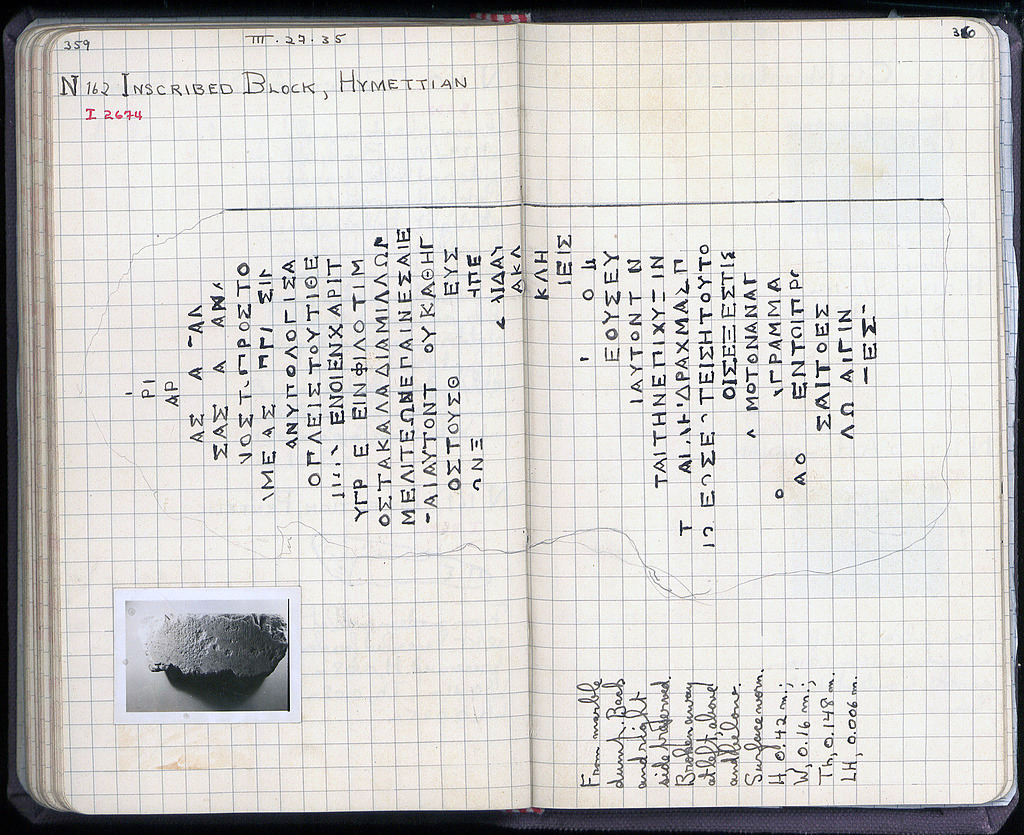 359
III.27.35
N 162 INSCRIBED BLOCK, HYMETTIAN
I 2674
ΡΙ
ΑΡ
ΑΣ Α
ΣΑΣ Α
ΝΟΣ ΠΡΟΣΤΟ
ΙΜΕΑΣ ΣΙ
ΑΝΥΠΟΛΟΓΙΣΑ
ΟΓΛΕΙΣΤΟΥΤΙΘΕ
ΕΝΟΙΕΝΧΑΡΙΤ
ΥΓΡ Ε ΕΙΝΦΙΛΟΤΙΜ
ΟΣΤΑΚΑΛΑΔΙΑΜΙΛΛΩ
ΜΕΛΙΤΕΩΝΕΠΑΙΝΕΣΑΙΕ
ΑΙΑΥΤΟΝΤ ΟΥΚΑΘΗΓ
ΟΣΤΟΥΣΘ ΕΥΣ
ΝΞ ΠΕ
ΛΙΔΑ
ΑΚΛ
ΚΛΗ
ΙΕΙΣ
Ο
ΕΟΥΣΕΥ
ΙΑΥΤΟΝΤ Ν
ΤΑΙΤΗΝΕΠΙΧΥΞΙΝ
Τ ΔΡΑΧΜΑΣ Π
ΕΩΣΕ ΤΕΙΣΗΤΟΥΤΟ
ΟΙΣΕΞΕΣΤΩ
ΜΟΤΟΝΑΝΑΓ
Ο ΓΡΑΜΜΑ
ΑΟ ΕΝΤΩΙΠΡ
ΣΑΙΤΟΕΣ
ΛΩ ΑΙΓΙΝ
ΕΣ
From marble
dump. Back
and right
side preserved.
Broken away
at left, above
and below.
Surface worn.
H, 0.42 m.;
W, 0.16 m.;
Th, 0.148 m.
LH, 0.006 m.